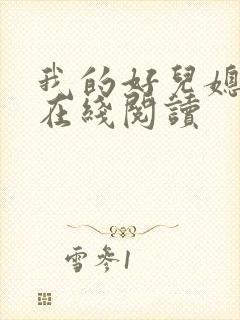 我的好兒媳
在綫閱讀
雪參1